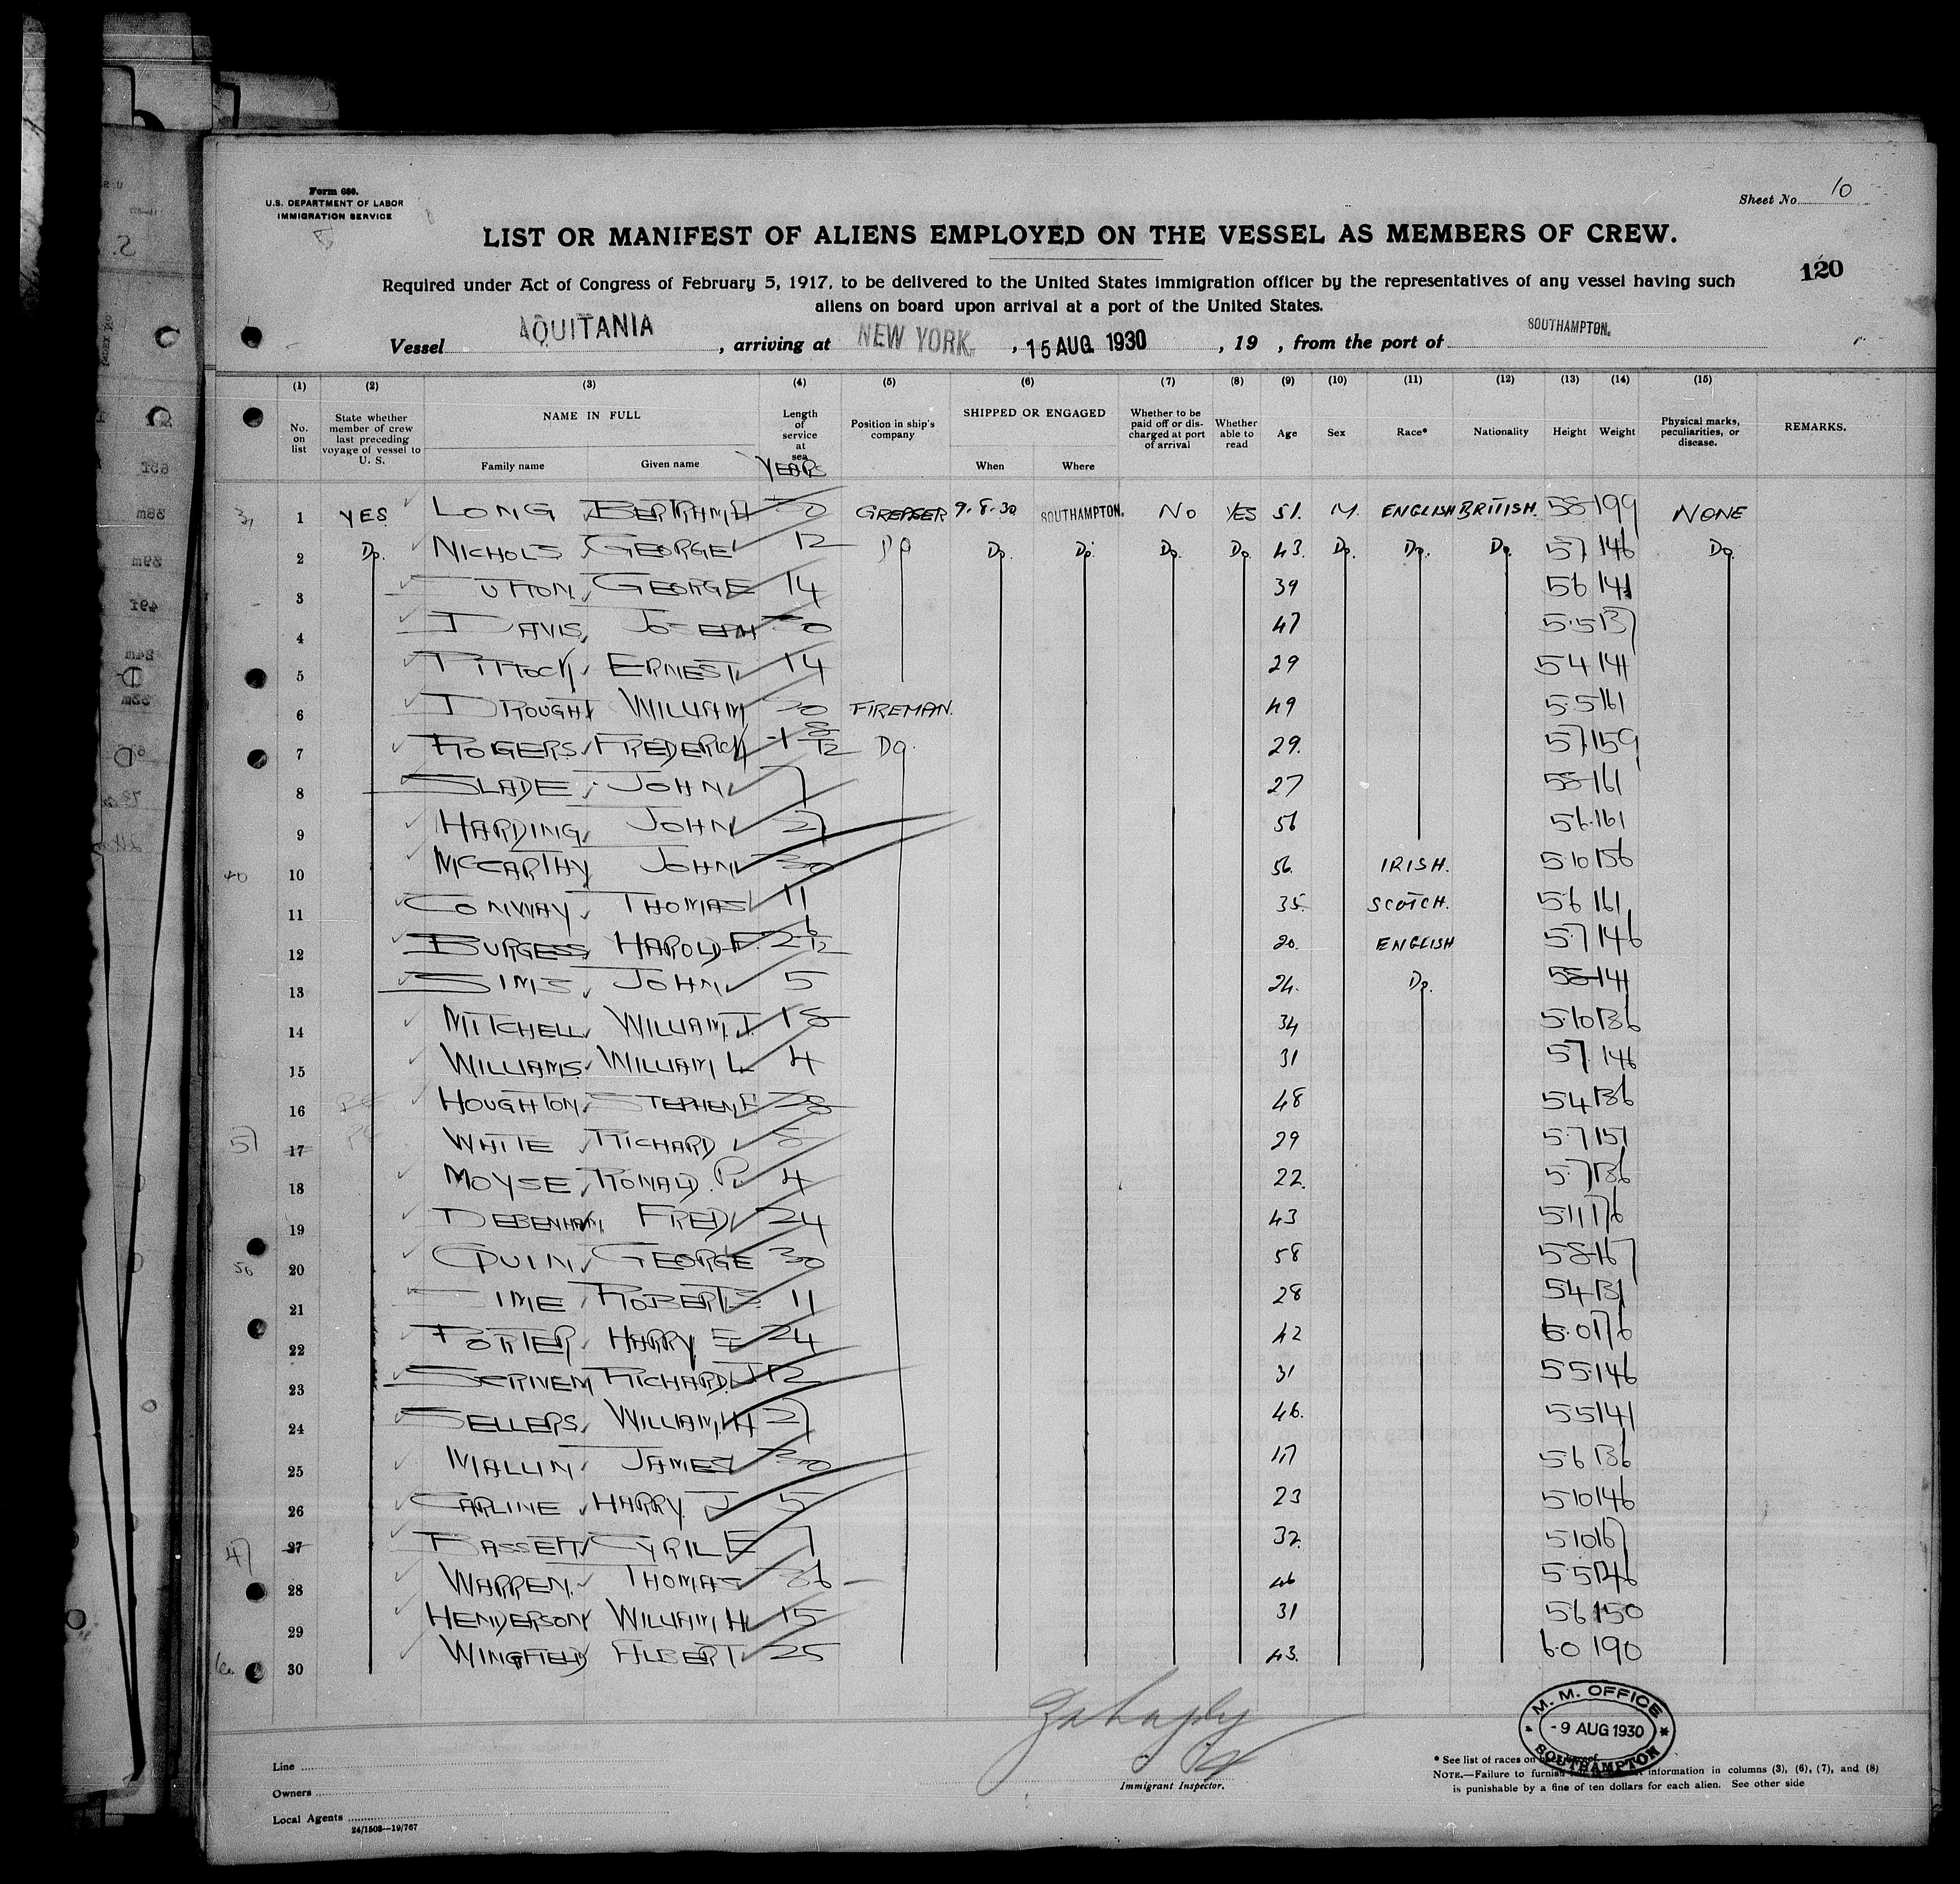 Form 680.
U.S. DEPARTMENT OF LABOR
IMMIGRATION SERVICE
Sheet No. 10
LIST OR MANIFEST OF ALIENS EMPLOYED ON THE VESSEL AS MEMBERS OF CREW.
120
Required under Act of Congress of February 5, 1917, to be delivered to the United States immigration officer by the representatives of any vessel having such
aliens on board upon arrival at a port of the United States.
Vessel AQUITANIA, arriving at NEW YORK, 15 AUG 1930, 19 , from the port of SOUTHAMPTON.
(1) (2) (3) (4) (5) (6) (7) (8) (9) (10) (11) (12) (13) (14) (15)
No. on list State whether member of crew last preceding voyage of vessel to U. S. NAME IN FULL Family name Given name Length of service at sea YEARS Position in ship's company SHIPPED OR ENGAGED When Where Whether to be paid off or discharged at port of arrival Whether able to read Age Sex Race* Nationality Height Weight Physical marks, peculiarities, or disease. REMARKS.
1 YES LONG BERTRAM H 30 GREASER 9-8-30 SOUTHAMPTON. NO YES 51. M. ENGLISH BRITISH. 58 199 NONE
2 Do. NICHOLS GEORGE 12 Do Do. Do. Do. Do 43. Do. Do. Do 57 146 Do.
3 TUTTON GEORGE 14 39 56 141
4 DAVIS, JOSEPH 30 47 5.5 137
5 PITTOCK ERNEST 14 29 54 141
6 DROUGHT WILLIAM 30 FIREMAN. 49 5.5 161
7 ROGERS FREDERICK 1 8/12 Do. 29. 57 159
8 SLADE JOHN 7 27 58 161
9 HARDING JOHN 27 56 56 161
10 MCCARTHY JOHN 30 56. IRISH. 510 156
11 CONWAY THOMAS 11 35. SCOTCH. 56 161
12 BURGESS HAROLD F. 2 6/12 20. ENGLISH 57 146
13 SIMS JOHN 5 24. Do. 58 141
14 MITCHELL WILLIAM. J. 18 34 510 136
15 WILLIAMS WILLIAM L 4 31 57 146
16 HOUGHTON STEPHEN F 28 48 54 136
17 WHITE RICHARD 8 29 57 151
18 MOYSE RONALD. P. 4 22. 57 136
19 DEBENHAM FRED 24 43 511 176
20 QUIN GEORGE 30 58 58 167
21 SIME ROBERT S 11 28 54 131
22 PORTER HARRY E 24 42 6.0 176
23 SCRIVEN RICHARD. J 12 31 55 146
24 SELLERS WILLIAM H 27 46. 55 141
25 MALLIN JAMES 30 47 56 136
26 CARLINE HARRY J 5 23 510 146
27 BASSETT CYRIL E 7 32. 510 167
28 WARREN THOMAS 26 46 5.5 146
29 HENDERSON WILLIAM H 15 31 56 150
30 WINGFIELD ALBERT 25 43. 6.0 190
M. M. OFFICE
- 9 AUG 1930
SOUTHAMPTON
Line
Owners
Local Agents
24/1508—19/767
Immigrant Inspector.
* See list of races on
NOTE.—Failure to furnish information in columns (3), (6), (7), and (8)
is punishable by a fine of ten dollars for each alien. See other side